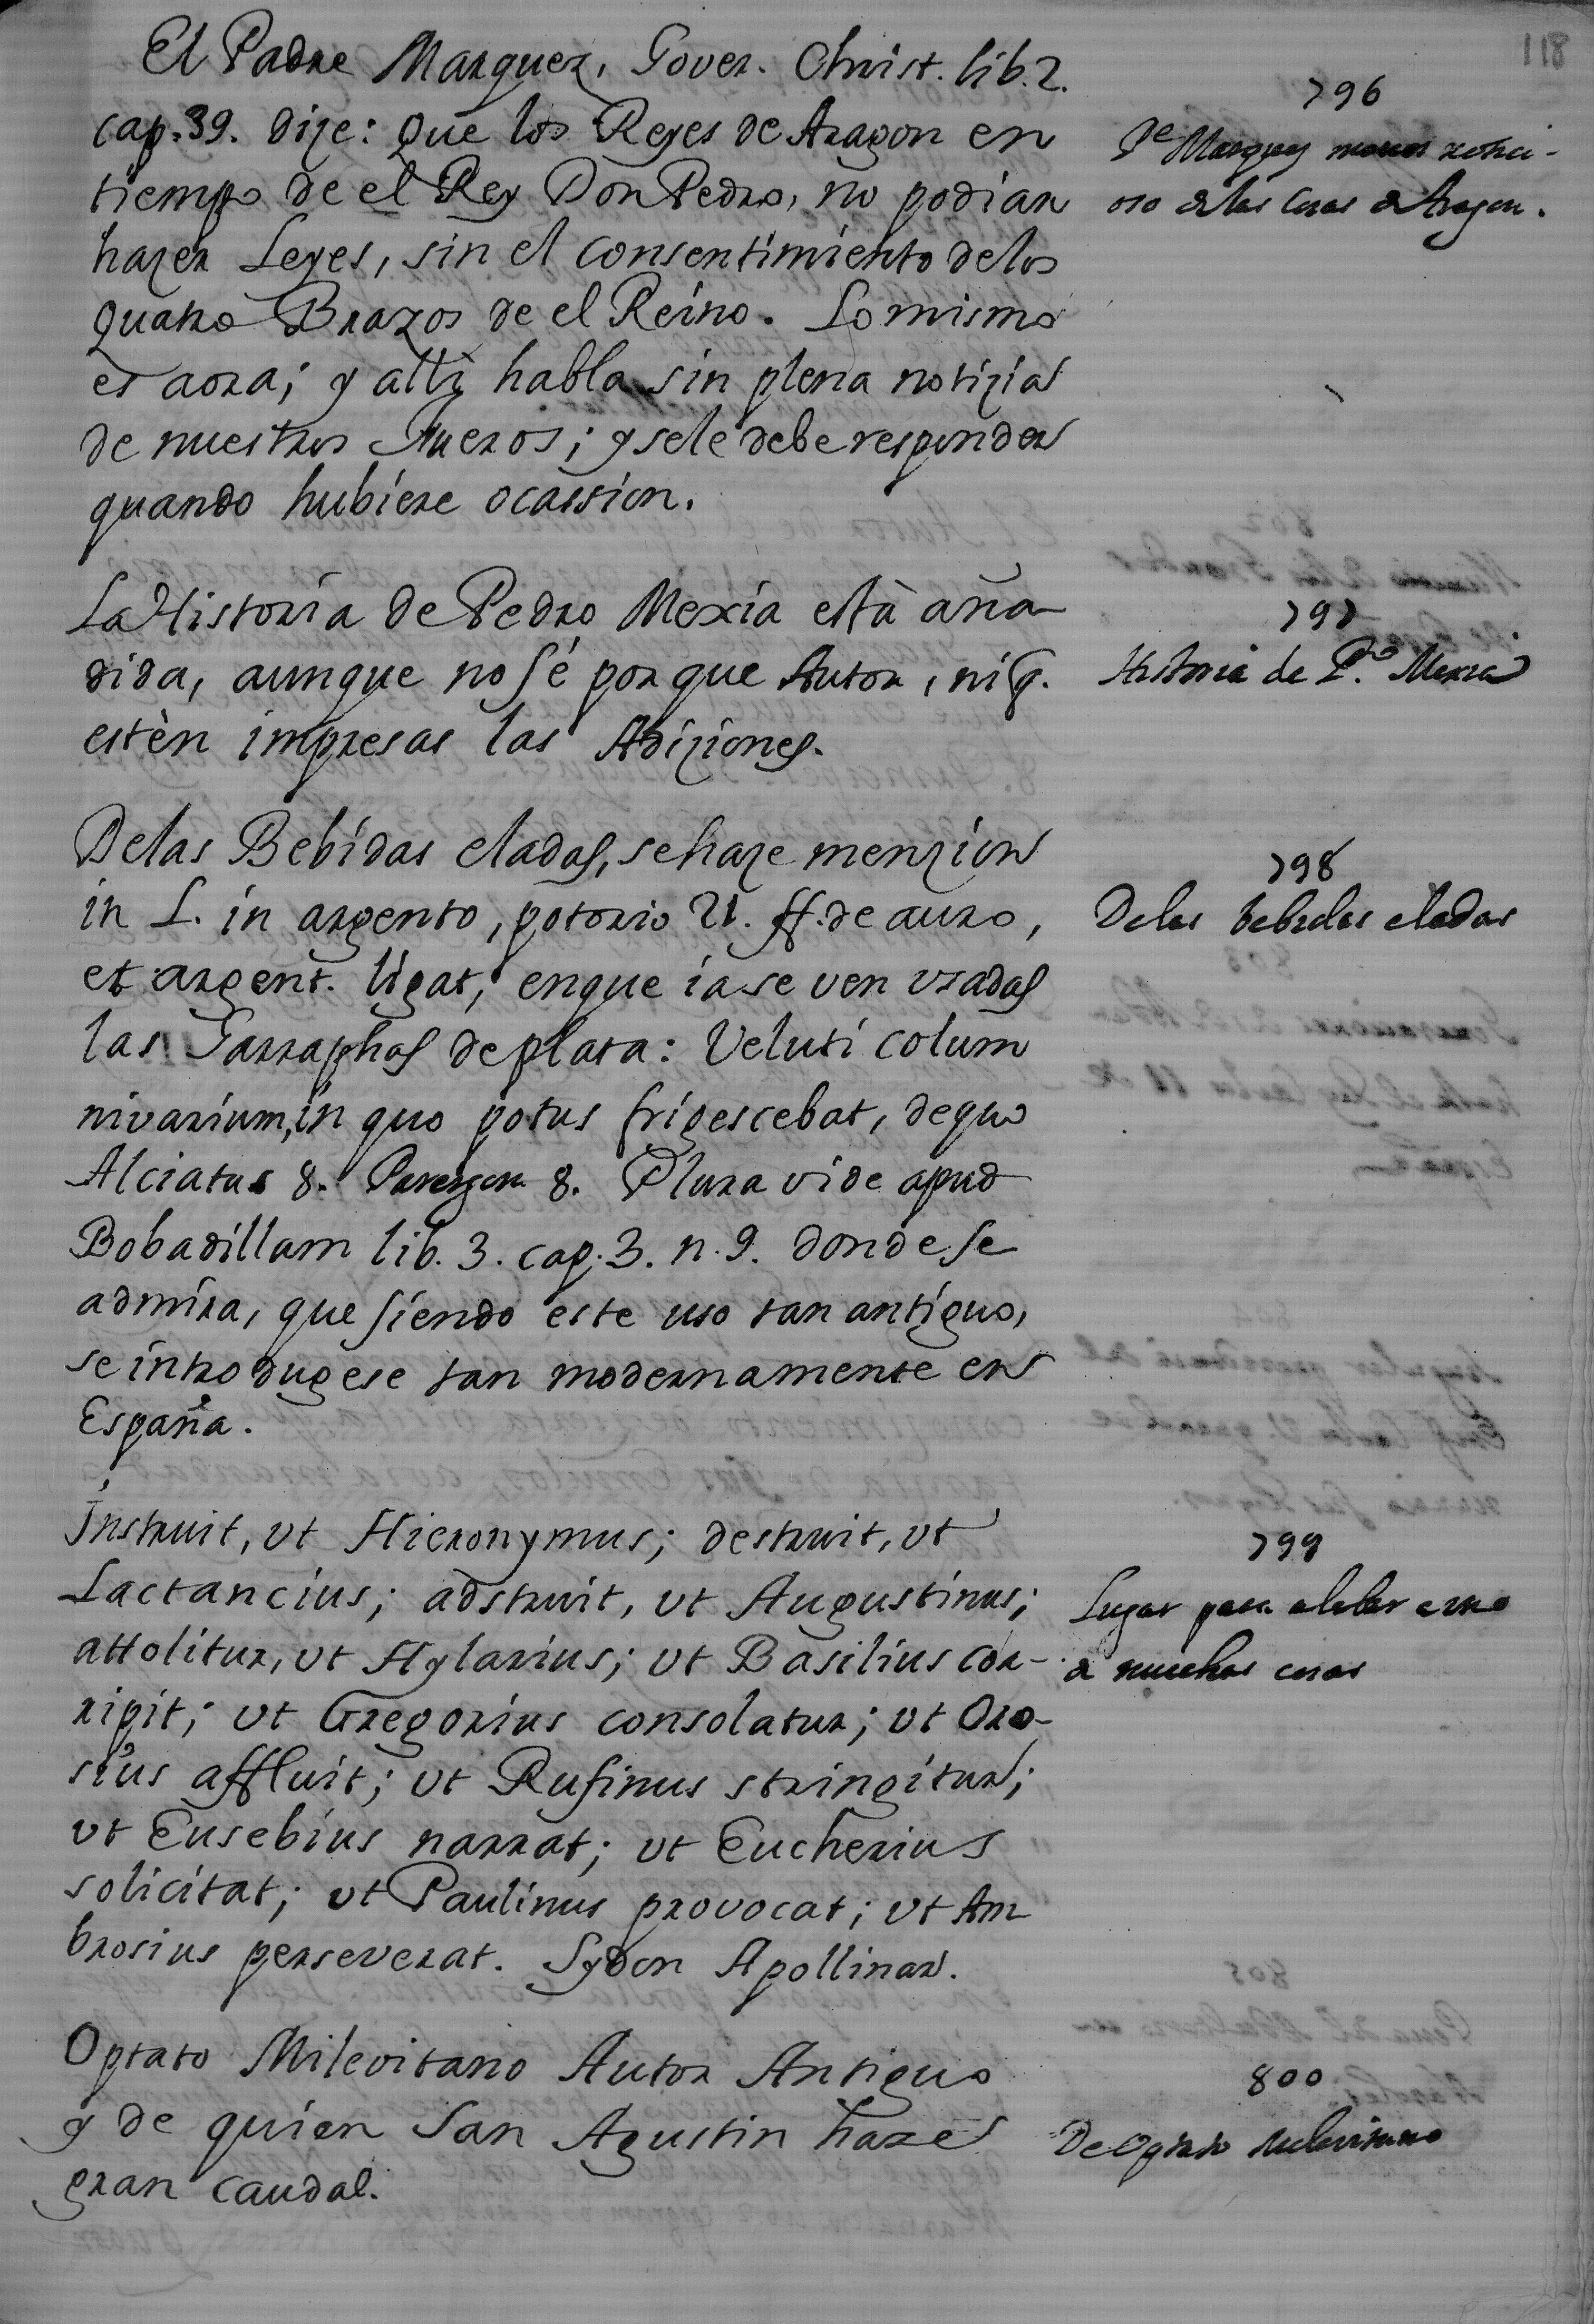 118
El Padre Marquez, Gover. Christ. lib. 2.
cap. 39. dize: Que los Reyes de Aragon en
tiempo de el Rey Don Pedro, no podian
hazer Leyes, sin el consentimiento de los
quatro Brazos de el Reino. Lo mismo
es aora; y alli habla sin plena notizia
de nuestros Fueros; y se le debe responder
quando hubiere ocassion.
796
Pe Marquez menos notici-
oso de las cosas de Aragon.
La Historia de Pedro Mexia està aña
dida, aunque no sé por que Autor, ni q.
estèn impresas las Adiziones.
797
Historia de Po. Mexia
De las Bebidas eladas, se haze menzion
in L. in argento, potorio 21. ff. de auro,
et argent. ligat, en que ia se ven usadas
las Garraphas de plata: Veluti colum
nivarium, in quo potus frigescebat, de quo
Alciatus 8. Parergon 8. Plura vide apud
Bobadillam lib. 3. cap. 3. n. 9. donde se
admira, que siendo este uso tan antiguo,
se introdugese tan modernamente en
España.
798
De las bebidas eladas
Instruit, ut Hieronymus; destruit, ut
Lactancius; adstruit, ut Augustinus;
attolitur, ut Hylarius; ut Basilius cor-
ripit; ut Gregorius consolatur; ut Oro-
sius affluit; ut Rufinus stringitur;
ut Eusebius narrat; ut Eucherius
solicitat; ut Paulinus provocat; ut Am
brosius perseverat. Sydon Apollinar.
799
Lugar para alabar a uno
de muchas cosas
Optato Milevitano Autor Antiguo
y de quien San Agustin haze
gran caudal.
800
De Optato Milevitano